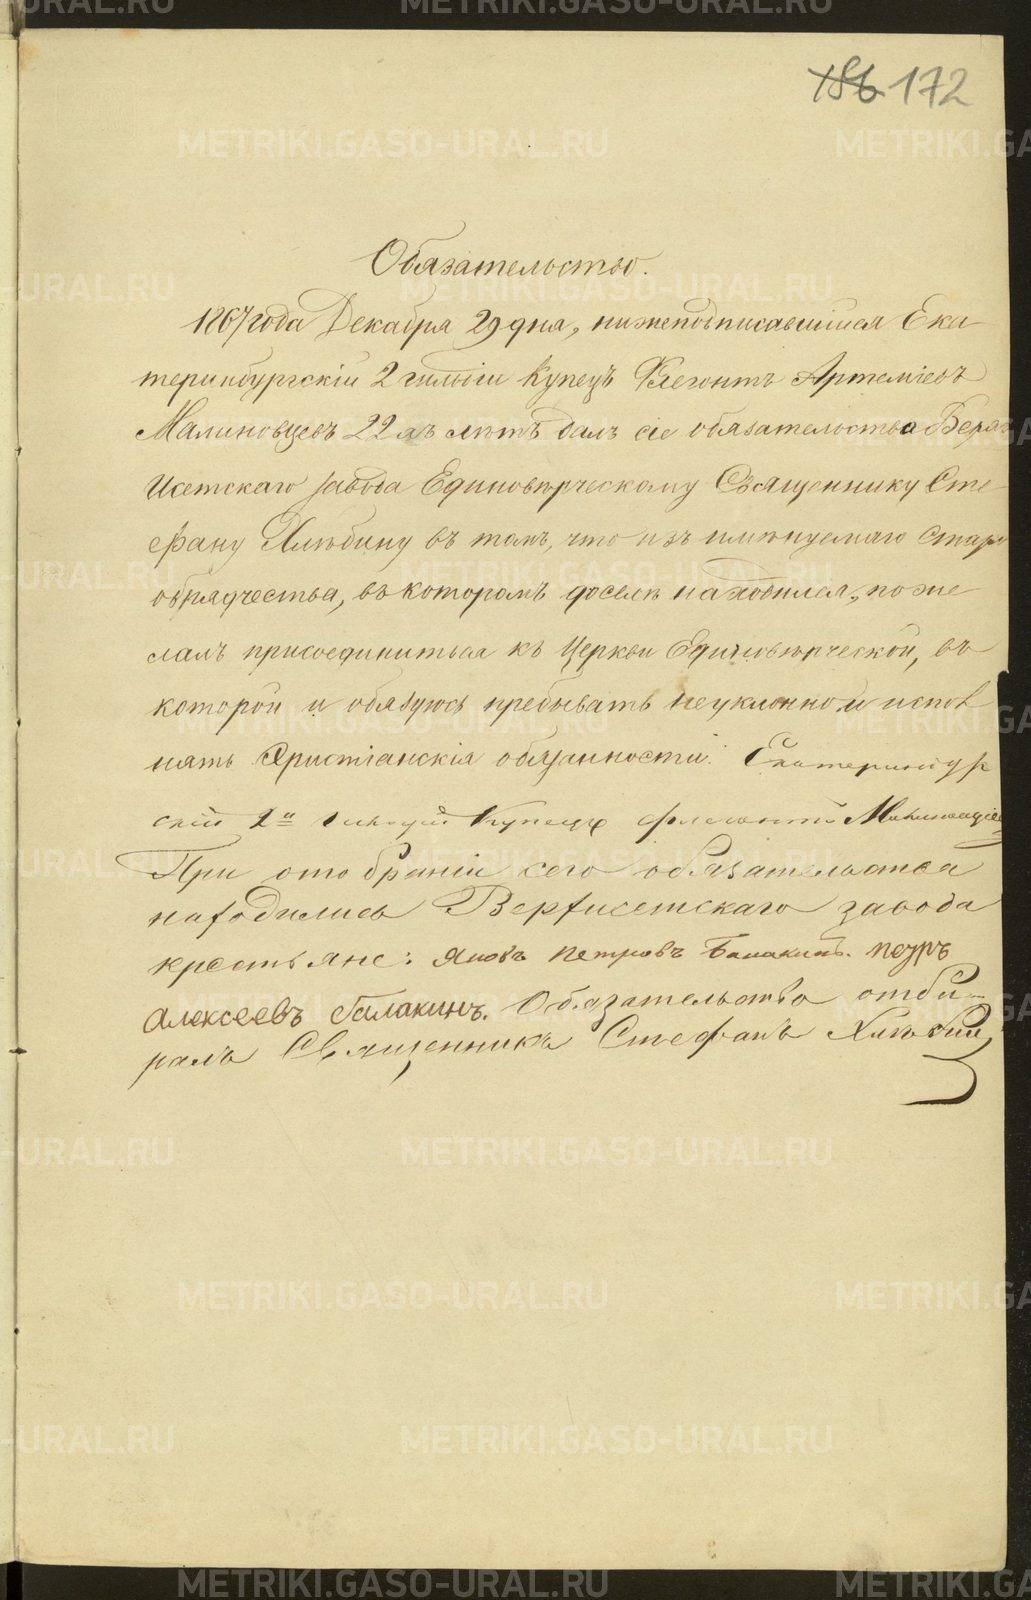 186 172
Обязательство.
1867 года Декабря 29 дня, нижеподписавшийся Ека
теринбургскій 2 гильдіи Купецъ Флегонтъ Артеміевъ
Малиновцевъ 22хъ лѣтъ далъ сіе обязательство Верхъ
Исетскаго завода Единовѣрческому Священнику Сте
фану Хлѣбину въ томъ, что изъ именуемаго старо
обрядчества, въ которомъ доселѣ находился, поже
лалъ присоединиться къ Церкви Единовѣрческой, въ
которой и обязуюсь пребывать неуклонно и испол
нять Христіанскія обязанности. Екатеринбур
скій 2й гильдіи Купецъ Флегонтъ Малиновцевъ
При отобраніи сего обязательства
находились Верхисетскаго завода
крестьяне: Яковъ Петровъ
Алексеевъ Галакинъ. Обязательство отби-
ралъ Священникъ Стефанъ Хлѣбин
METRIKI.GASO-URAL.RU